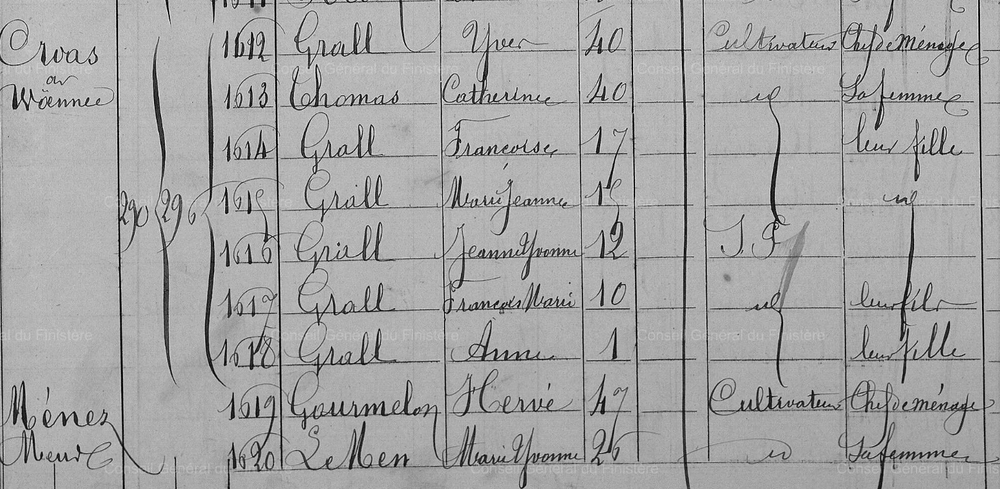 Croas 1612 Grall Yves 40 Cultivateur Chef de Ménage
ar
Woënnec 1613 Thomas Catherine 40 id Sa femme
1614 Grall Françoise 17 leur fille
290 296 1615 Grall Marie Jeanne 15 id
1616 Grall Jeanne Yvonne 12 S. P.
1617 Grall François Marie 10 id leur fils
1618 Grall Anne 1 leur fille
Ménez 1619 Gourmelon Hervé 47 Cultivateur Chef de ménage
Meur 1620 Le Men Marie Yvonne 26 id Sa femme
Conseil Général du Finistère